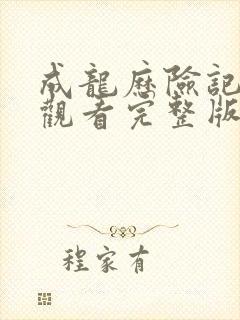 成龍歷險記
觀看完整版
程家有